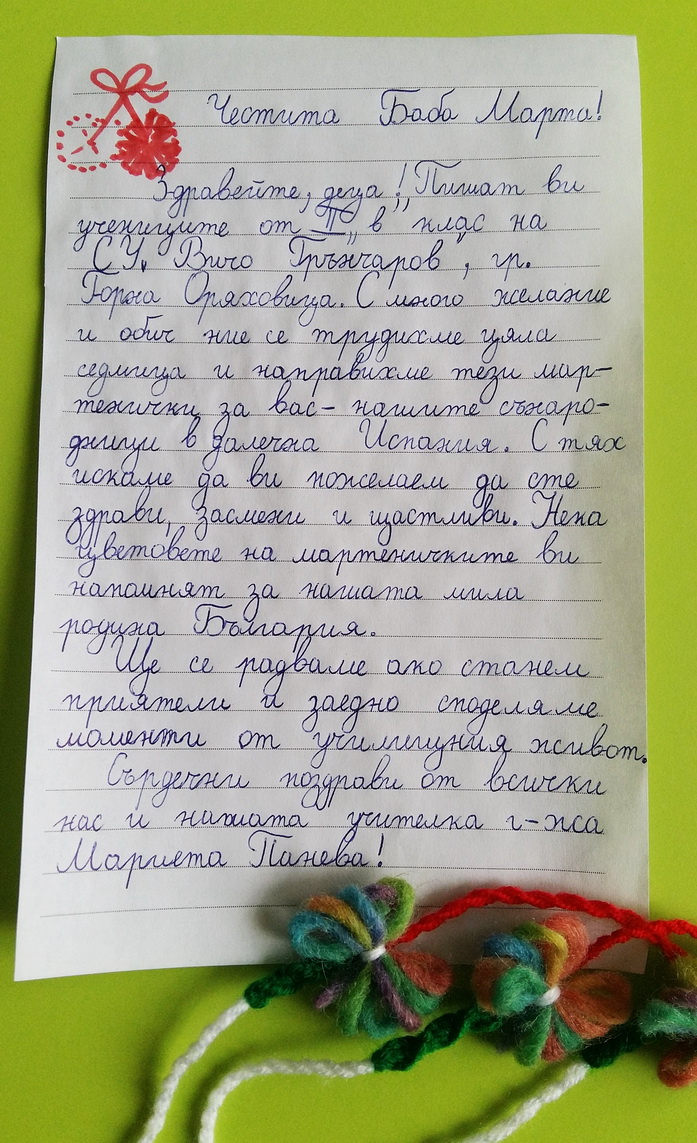 Честита Баба Марта!
Здравейте, деца! Пишат ви
учениците от II „в“ клас на
СУ „Вичо Грънчаров“, гр.
Горна Оряховица. С много желание
и обич ние се трудихме цяла
седмица и направихме тези мар-
тенички за вас- нашите сънаро-
дници в далечна Испания. С тях
искаме да ви пожелаем да сте
здрави, засмени и щастливи. Нека
цветовете на мартеничките ви
напомнят за нашата мила
родина България.
Ще се радваме ако станем
приятели и заедно споделяме
моменти от училищния живот.
Сърдечни поздрави от всички
нас и нашата учителка г-жа
Мариета Панева!